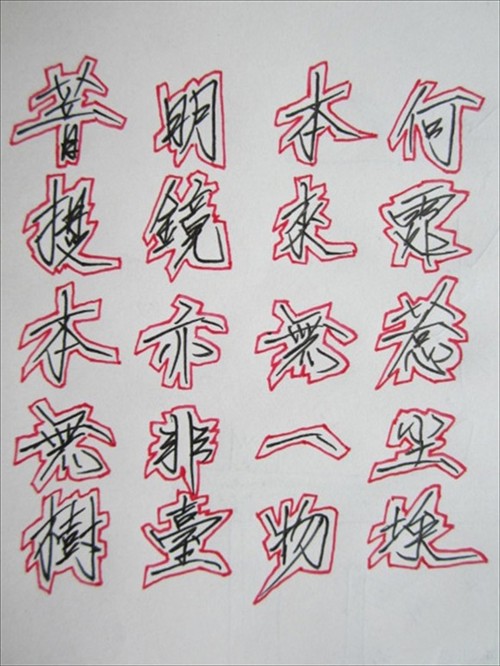 菩提本無樹
明鏡亦非臺
本來無一物
何處惹尘埃